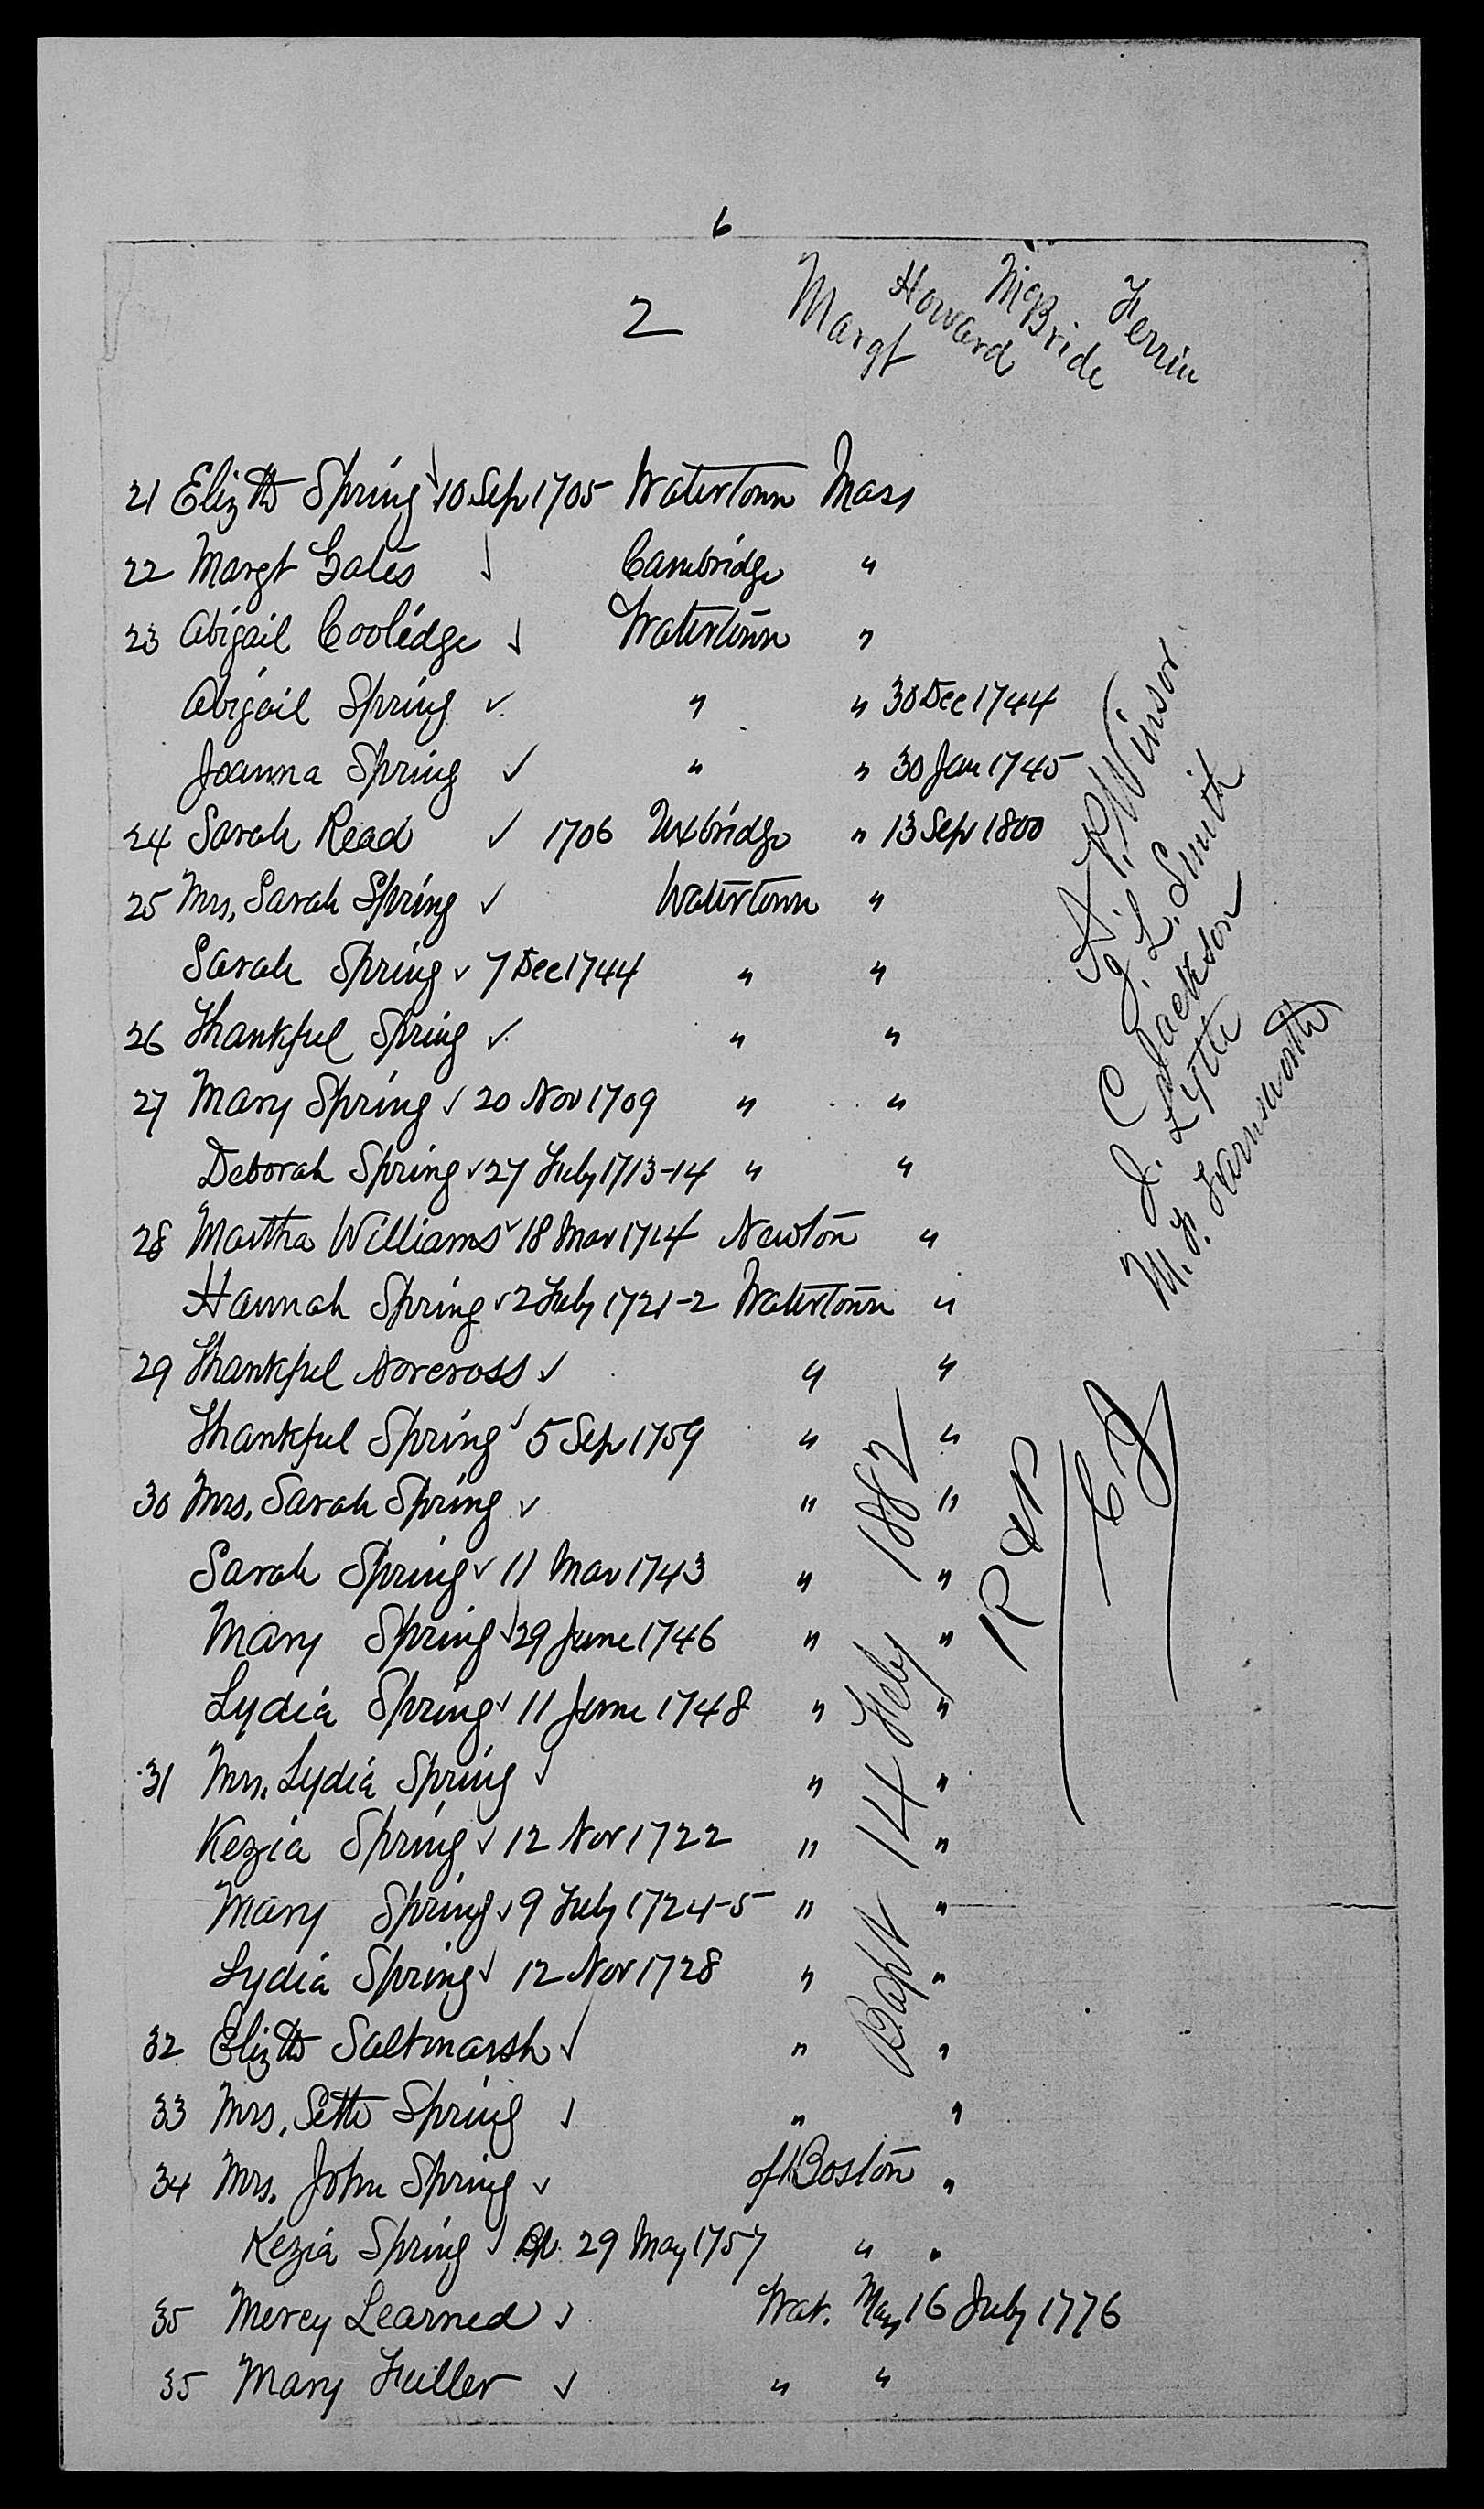 6
2
Margt
Howard
McBride
Ferrin
21 Elizth Spring ✓ 10 Sep 1705 Watertown Mass
22 Margt Gates ✓ Cambridge "
23 Abigail Coolidge ✓ Watertown "
Abigail Spring ✓ " " 30 Dec 1744
Joanna Spring ✓ " " 30 Jan 1745
24 Sarah Read ✓ 1706 Uxbridge " 13 Sep 1800
25 Mrs. Sarah Spring ✓ Watertown "
Sarah Spring ✓ 7 Dec 1744 " "
26 Thankful Spring ✓ " "
27 Mary Spring ✓ 20 Nov 1709 " "
Deborah Spring ✓ 27 Feby 1713-14 " "
28 Martha Williams ✓ 18 Mar 1714 Newton "
Hannah Spring ✓ 2 Feby 1721-2 Watertown "
29 Thankful Norcross ✓ " "
Thankful Spring ✓ 5 Sep 1759 " "
30 Mrs. Sarah Spring ✓ " "
Sarah Spring ✓ 11 Mar 1743 " "
Mary Spring ✓ 29 June 1746 " "
Lydia Spring ✓ 11 June 1748 " "
31 Mrs. Lydia Spring ✓ " "
Kezia Spring ✓ 12 Nov 1722 " "
Mary Spring ✓ 9 Feby 1724-5 " "
Lydia Spring ✓ 12 Nov 1728 " "
32 Elizth Saltmarsh ✓ " "
33 Mrs. Seth Spring ✓ " "
34 Mrs. John Spring ✓ of Boston "
Kezia Spring ✓ Bp. 29 May 1757 " "
35 Mercy Learned ✓ Wat. Mass 16 July 1776
35 Mary Fuller ✓ " "
Bapt 14 Feby 1882
A. P. Winsor
J. L. Smith
C Jackson
J. Lytle
M. F. Farnsworth